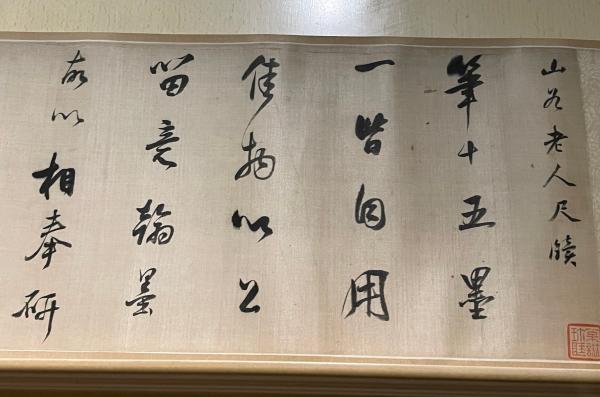 山谷老人尺牘
筆十五墨
一皆自用
佳物以公
留意翰墨
故以相奉研